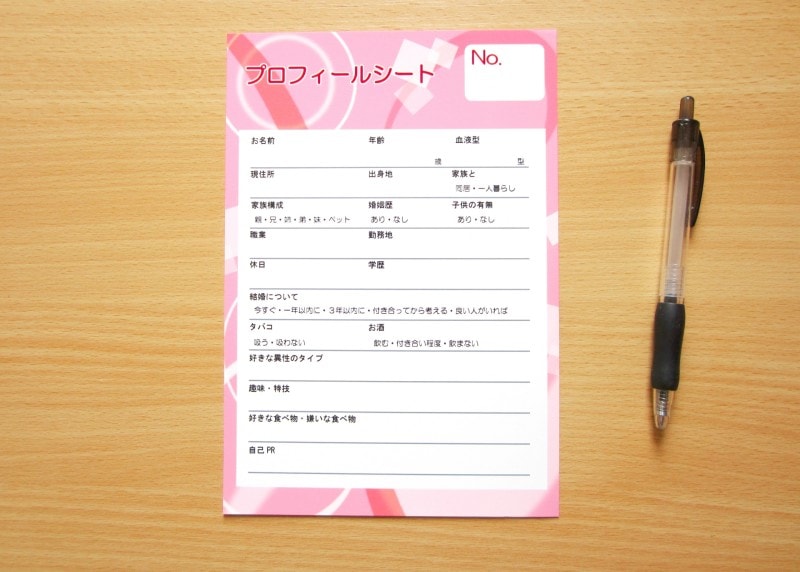 プロフィールシート
No.
お名前 年齢 血液型
歳 型
現住所 出身地 家族と
同居・一人暮らし
家族構成 婚姻歴 子供の有無
親・兄・姉・弟・妹・ペット あり・なし あり・なし
職業 勤務地
休日 学歴
結婚について
今すぐ・一年以内に・3年以内に・付き合ってから考える・良い人がいれば
タバコ お酒
吸う・吸わない 飲む・付き合い程度・飲まない
好きな異性のタイプ
趣味・特技
好きな食べ物・嫌いな食べ物
自己PR